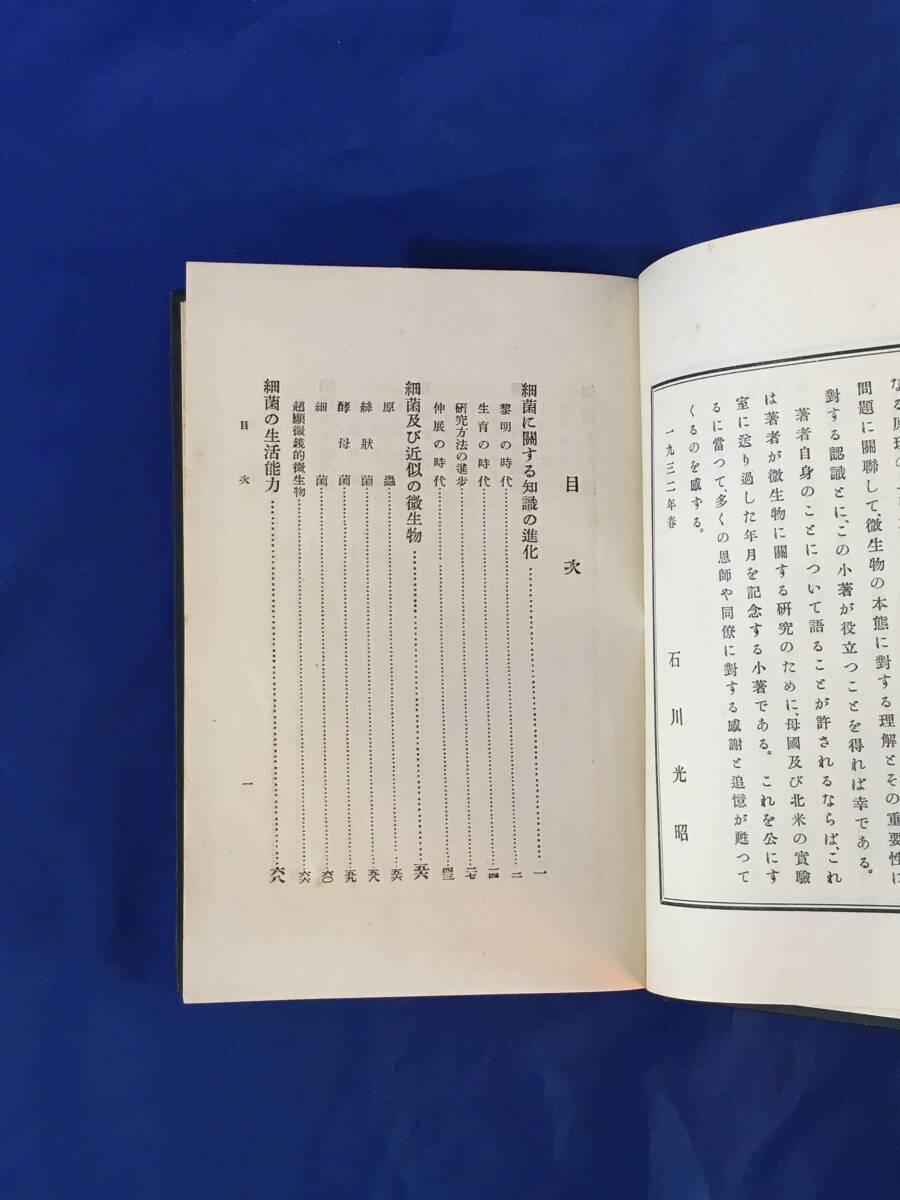 問題に關聯して、微生物の本態に對する理解とその重要性に
對する認識とに、この小著が役立つことを得れば幸である。
著者自身のことについて語ることが許されるならば、これ
は著者が微生物に關する研究のために、母國及び北米の實驗
室に送り過した年月を記念する小著である。これを公にす
るに當つて、多くの恩師や同僚に對する感謝と追憶が甦つて
くるのを感ずる。
一九三二年春
石川光昭
目次
細菌に關する知識の進化……一
黎明の時代……二
生育の時代……一四
研究方法の進步……二七
伸展の時代……四三
細菌及び近似の微生物……五六
原蟲……五六
絲狀菌……五八
酵母菌……五九
細菌……六〇
超顯微鏡的微生物……六六
細菌の生活能力……六八
目次
一